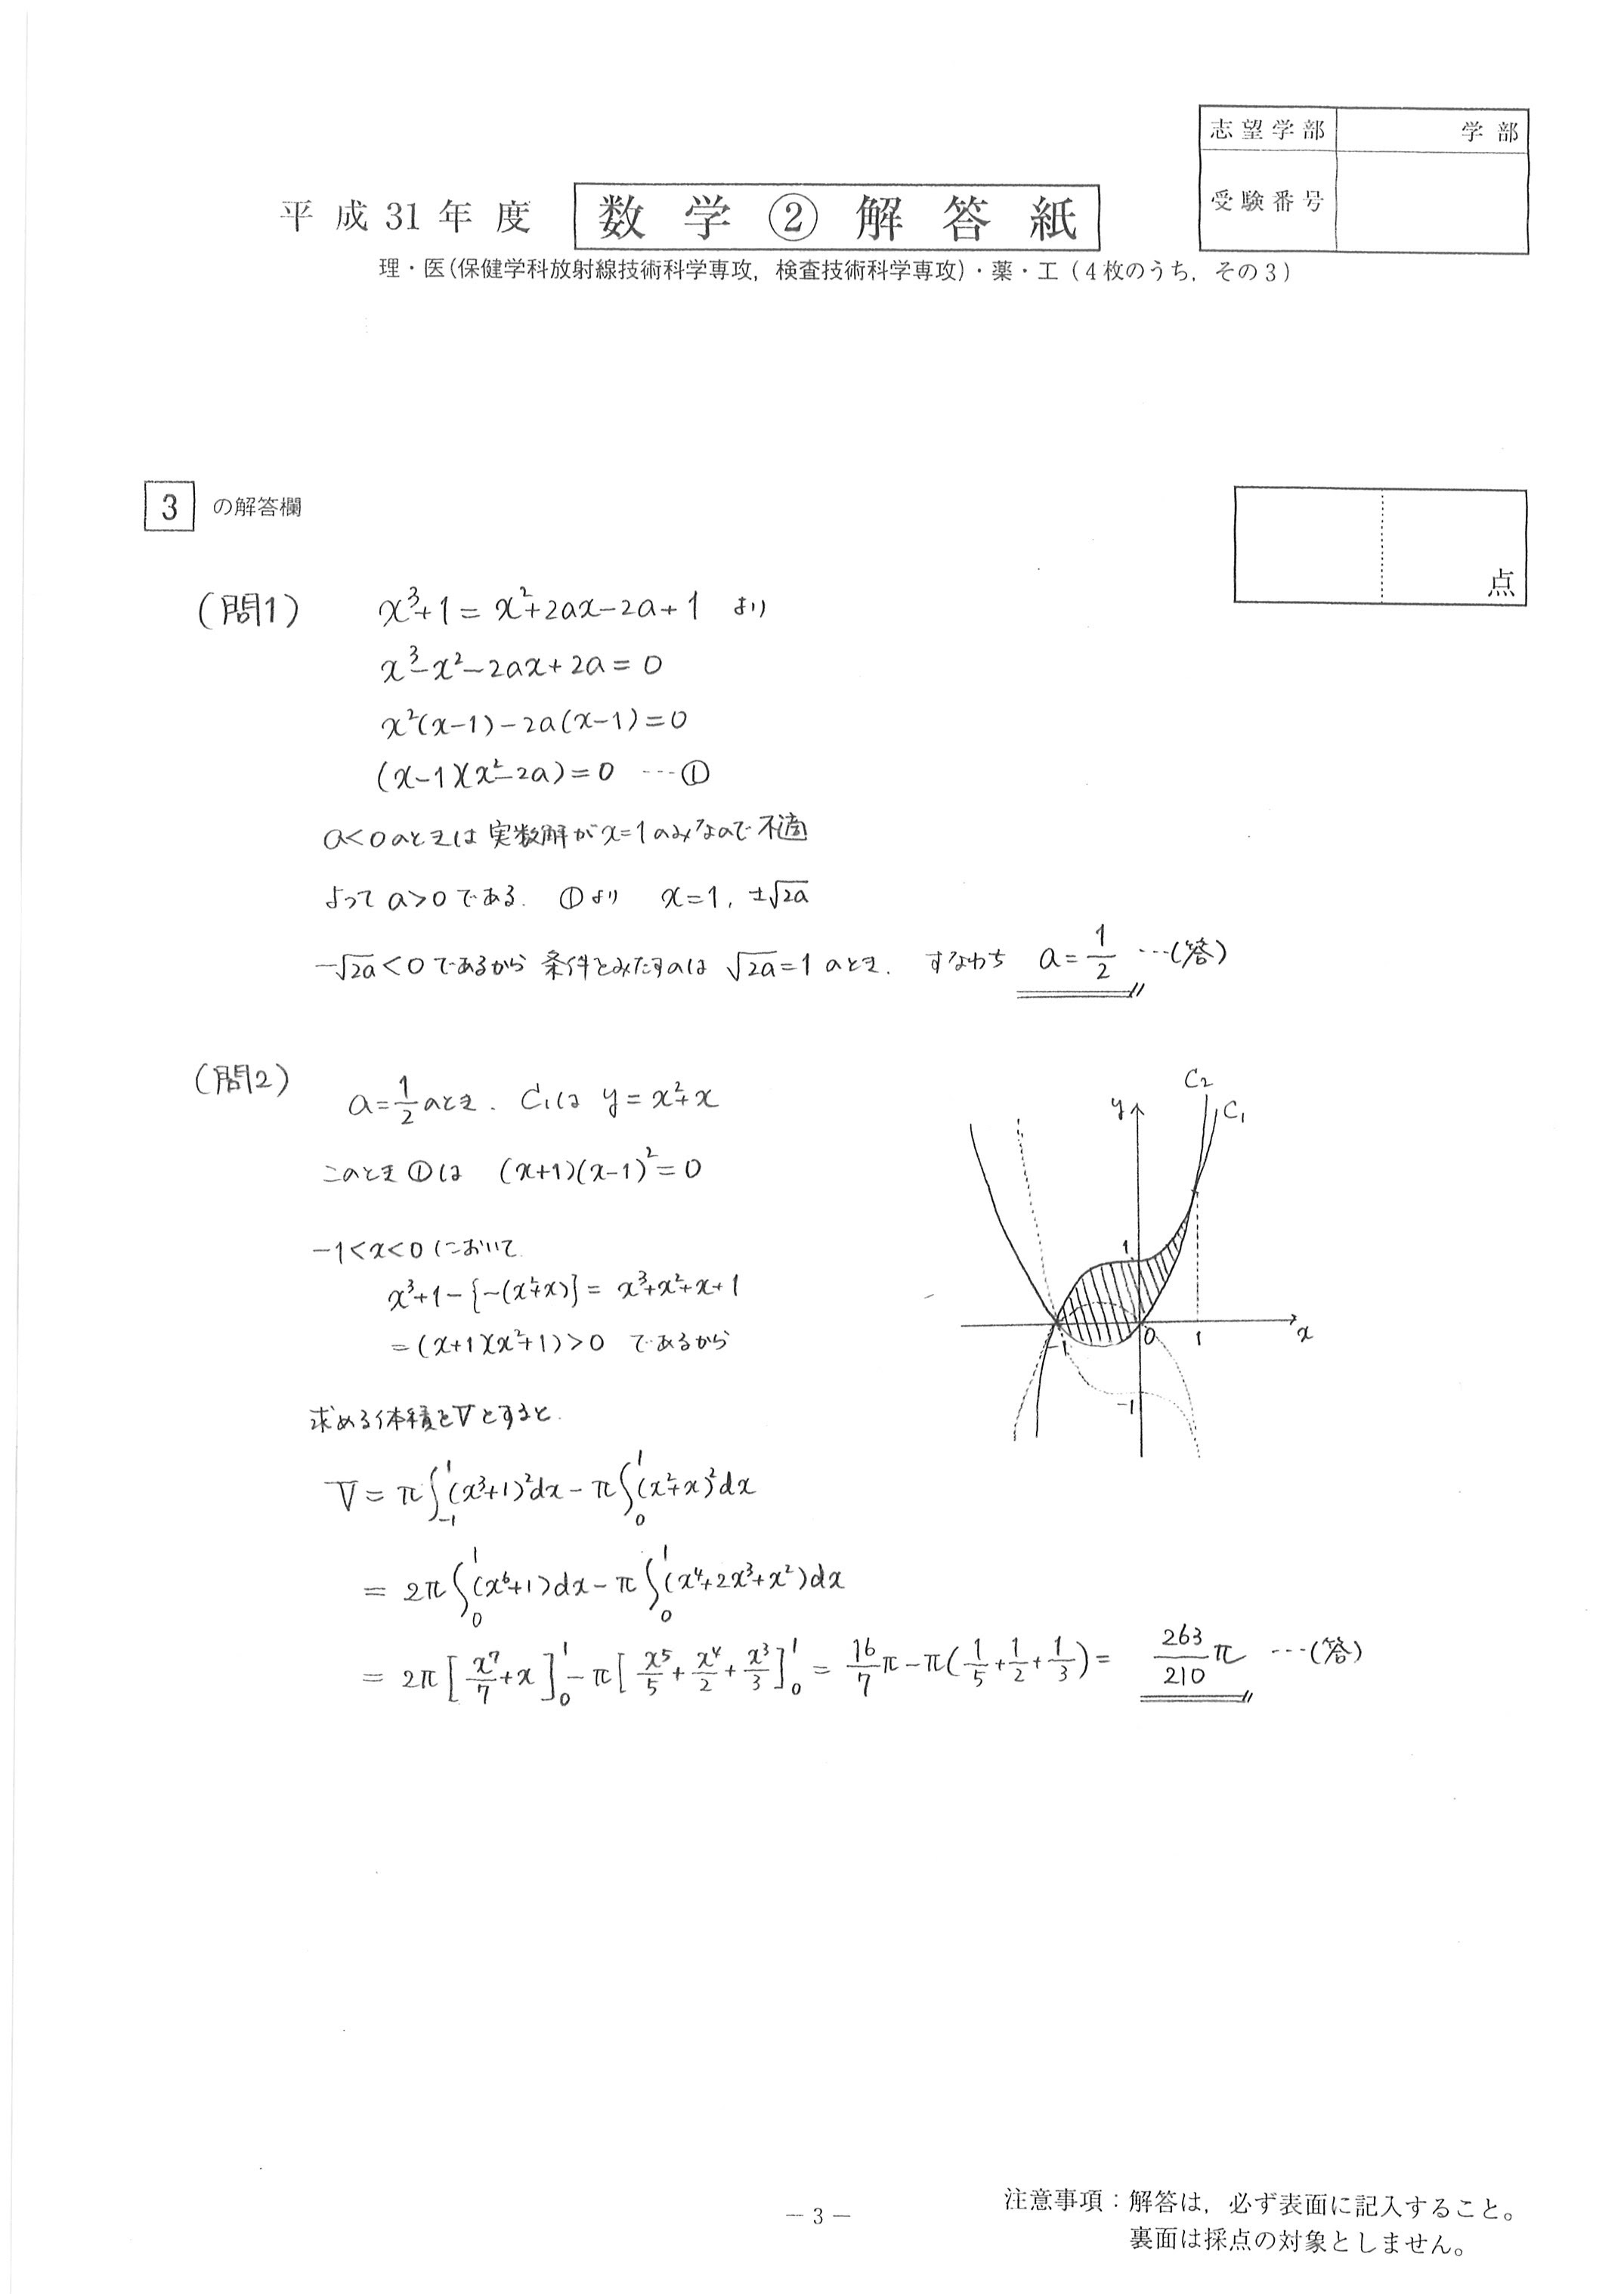 志望学部 学部
受験番号
平成31年度 数学②解答紙
理・医(保健学科放射線技術科学専攻, 検査技術科学専攻)・薬・工(4枚のうち, その3)
3 の解答欄
点
(問1) x³+1=x²+2ax-2a+1 より
x³-x²-2ax+2a=0
x²(x-1)-2a(x-1)=0
(x-1)(x²-2a)=0 …①
a<0のときは実数解がx=1のみなので不適
よってa>0である. ①より x=1, ±√2a
-√2a<0であるから条件をみたすのは √2a=1 のとき. すなわち a=1/2 …(答)
(問2)
a=1/2のとき. C₁は y=x²+x
このとき①は (x+1)(x-1)²=0
-1<x<0において
x³+1-{-(x²+x)}=x³+x²+x+1
=(x+1)(x²+1)>0 であるから
求める体積をVとすると.
V=π∫₋₁¹(x³+1)²dx-π∫₀¹(x²+x)²dx
=2π∫₀¹(x⁶+1)dx-π∫₀¹(x⁴+2x³+x²)dx
=2π[x⁷/7+x]₀¹-π[x⁵/5+x⁴/2+x³/3]₀¹=16/7π-π(1/5+1/2+1/3)= 263/210π …(答)
C₂
y C₁
1
-1 0 1 x
-1
注意事項：解答は, 必ず表面に記入すること。
裏面は採点の対象としません。
— 3 —